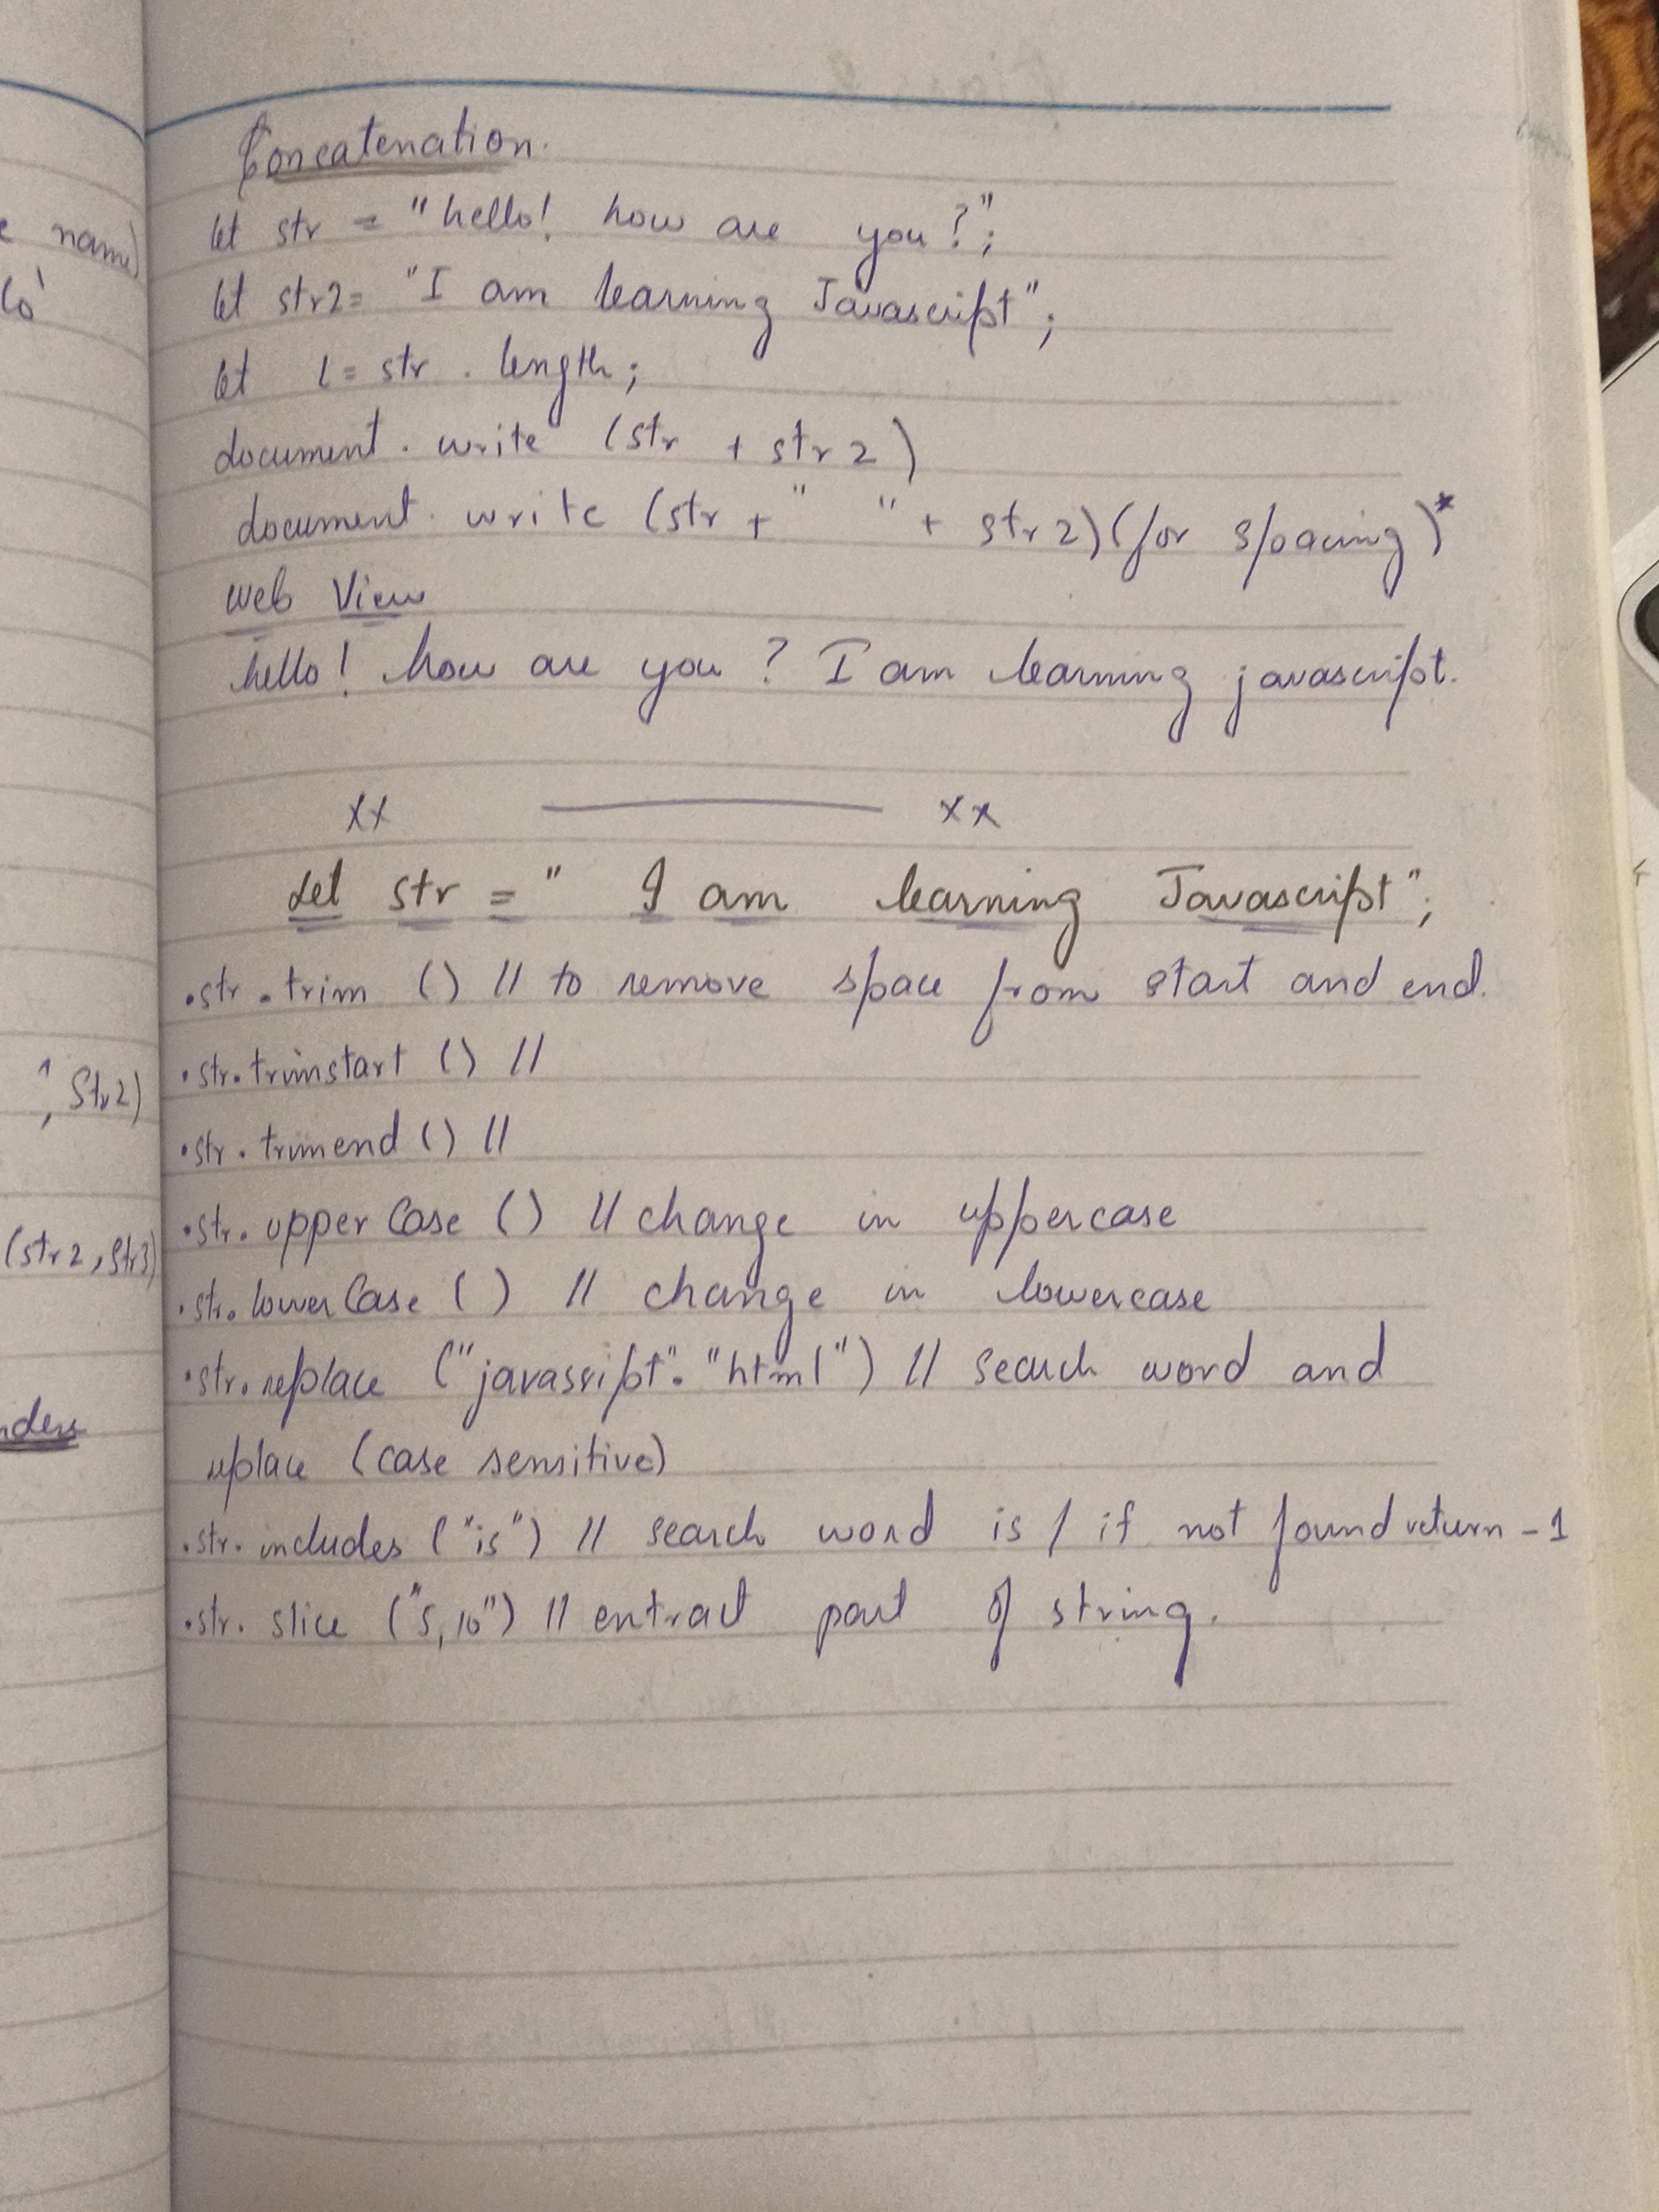 Concatenation.
let str = "hello! how are you?";
let str2= "I am learning Javascript";
let l= str . length;
document . write (str + str2)
document . write (str + " " + str2) (for spacing)*
web View
hello! how are you ? I am learning javascript.
xx ——— xx
Let str = " I am learning Javascript";
.str.trim () // to remove space from start and end.
.str.trimstart () //
.str.trimend () //
.str.upperCase () // change in uppercase
.str.lowerCase () // change in lowercase
.str.replace ("javasript". "html") // search word and
replace (case sensitive)
.str.includes ("is") // search word is / if not found return -1
.str.slice ("5,10") // entract part of string.
name)
, Str2)
(str2, str3)